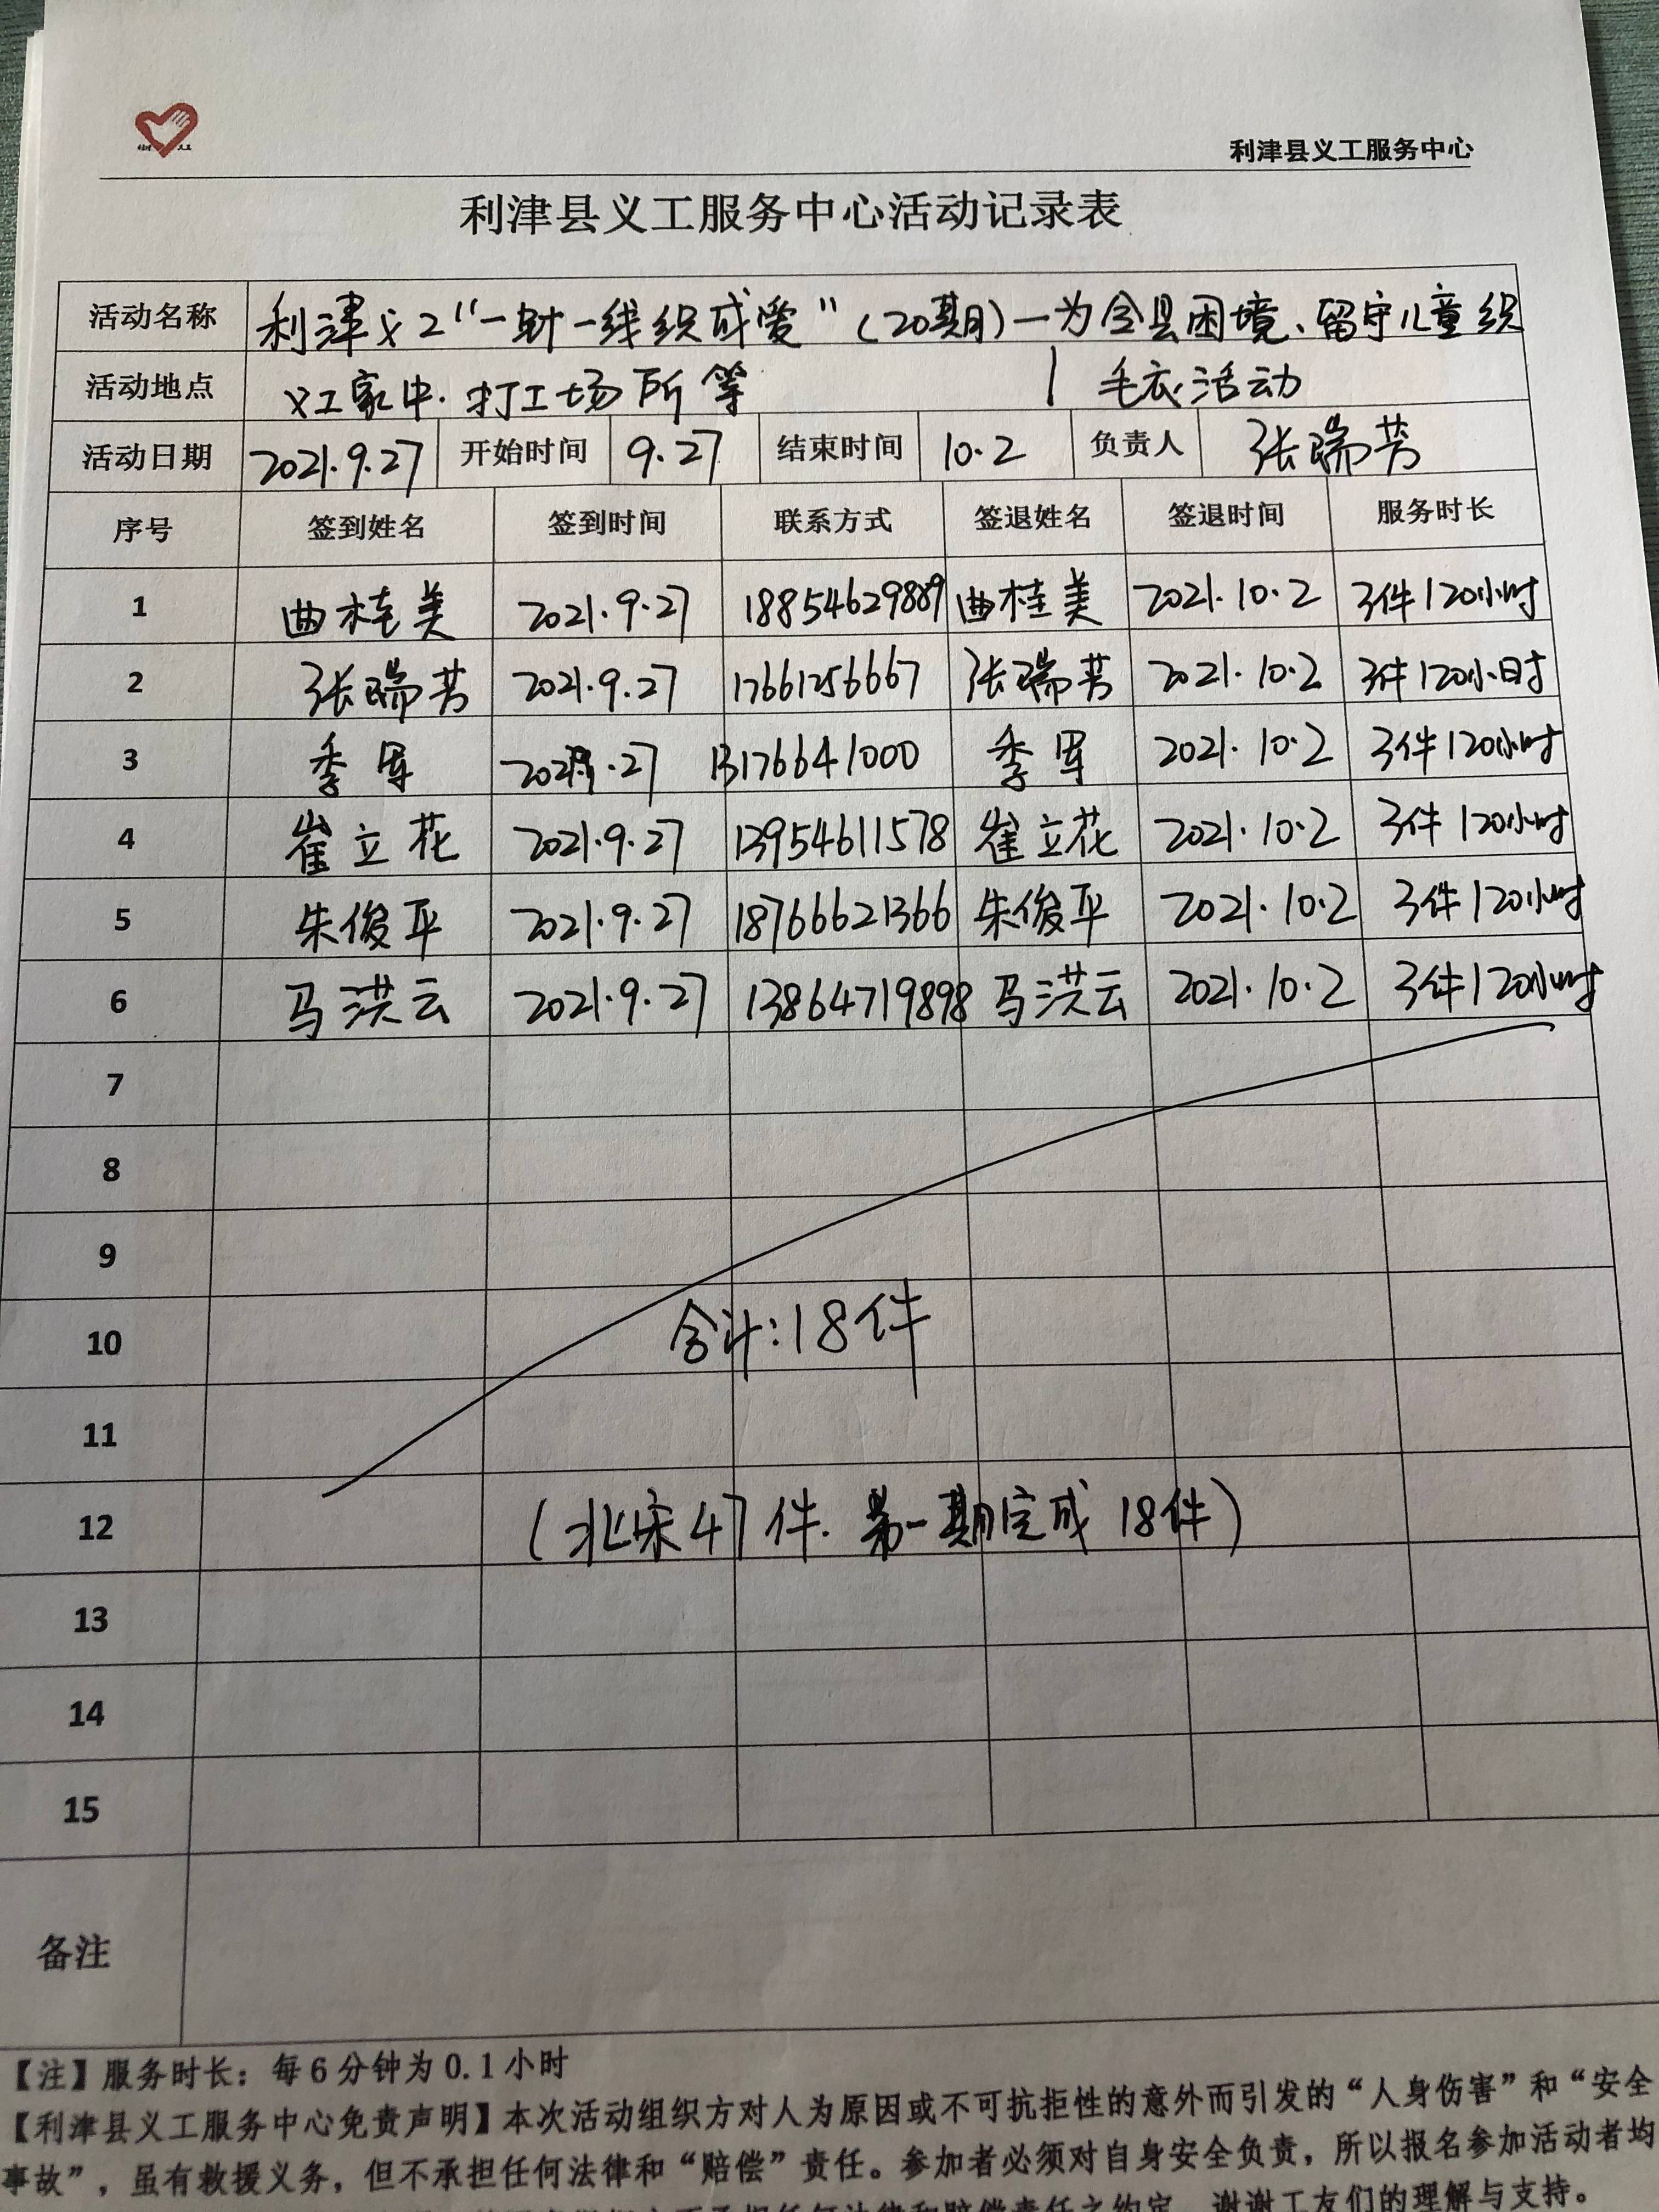 利津县义工服务中心
利津县义工服务中心活动记录表
活动名称 利津义工“一针一线织成爱”(20期)—为全县困境、留守儿童织
活动地点 义工家中.打工场所等 毛衣活动
活动日期 2021.9.27 开始时间 9.27 结束时间 10.2 负责人 张瑞芳
序号 签到姓名 签到时间 联系方式 签退姓名 签退时间 服务时长
1 曲桂美 2021.9.27 18854629889 曲桂美 2021.10.2 3件120小时
2 张瑞芳 2021.9.27 17661256667 张瑞芳 2021.10.2 3件120小时
3 季军 2021.9.27 13176641000 季军 2021.10.2 3件120小时
4 崔立花 2021.9.27 13954611578 崔立花 2021.10.2 3件120小时
5 朱俊平 2021.9.27 18766621366 朱俊平 2021.10.2 3件120小时
6 马洪云 2021.9.27 13864719898 马洪云 2021.10.2 3件120小时
7
8
9
10 合计:18件
11
12 (北宋47件.第一期完成18件)
13
14
15
备注
【注】服务时长：每6分钟为0.1小时
【利津县义工服务中心免责声明】本次活动组织方对人为原因或不可抗拒性的意外而引发的“人身伤害”和“安全
事故”，虽有救援义务，但不承担任何法律和“赔偿”责任。参加者必须对自身安全负责，所以报名参加活动者均
谢谢工友们的理解与支持。